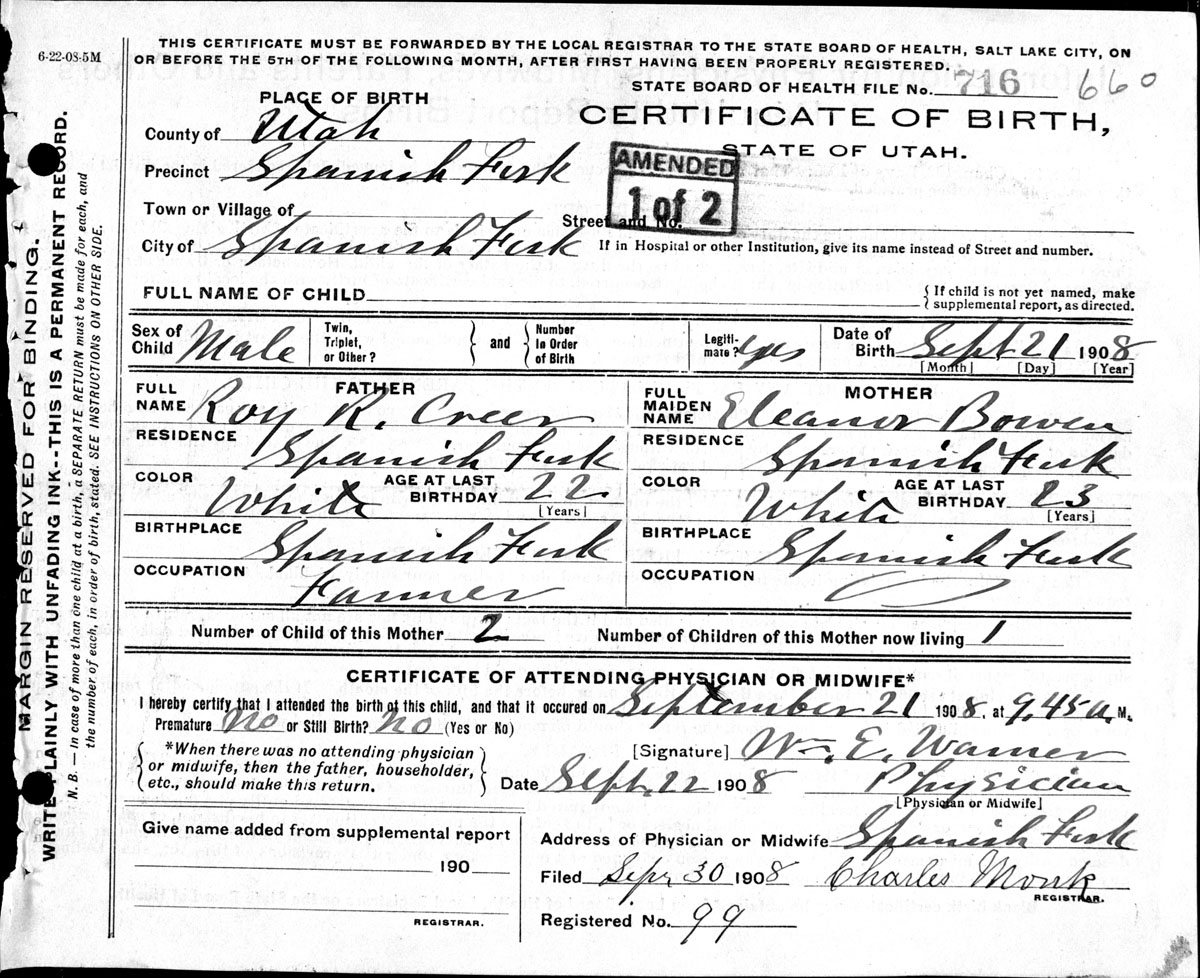 6-22-08-5M
THIS CERTIFICATE MUST BE FORWARDED BY THE LOCAL REGISTRAR TO THE STATE BOARD OF HEALTH, SALT LAKE CITY, ON
OR BEFORE THE 5TH OF THE FOLLOWING MONTH, AFTER FIRST HAVING BEEN PROPERLY REGISTERED.
STATE BOARD OF HEALTH FILE No. 716 660
PLACE OF BIRTH
CERTIFICATE OF BIRTH,
STATE OF UTAH.
County of Utah
AMENDED
1 of 2
Precinct Spanish Fork
Town or Village of
Street and No.
City of Spanish Fork
If in Hospital or other Institution, give its name instead of Street and number.
FULL NAME OF CHILD
{ If child is not yet named, make
supplemental report, as directed.
Sex of Child Male
Twin, Triplet, or Other? } and { Number in Order of Birth
Legiti-mate? yes
Date of Birth Sept 21 1908
[Month] [Day] [Year]
FATHER
FULL NAME Roy R. Creer
RESIDENCE Spanish Fork
COLOR White AGE AT LAST BIRTHDAY 22
[Years]
BIRTHPLACE Spanish Fork
OCCUPATION Farmer
MOTHER
FULL MAIDEN NAME Eleanor Bowen
RESIDENCE Spanish Fork
COLOR White AGE AT LAST BIRTHDAY 23
[Years]
BIRTHPLACE Spanish Fork
OCCUPATION
Number of Child of this Mother 2 Number of Children of this Mother now living 1
CERTIFICATE OF ATTENDING PHYSICIAN OR MIDWIFE*
I hereby certify that I attended the birth of this child, and that it occured on September 21 1908, at 9.45 a. M.
Premature No or Still Birth? No (Yes or No)
{ *When there was no attending physician
or midwife, then the father, householder,
etc., should make this return. }
[Signature] Wm. E. Warner
Date Sept. 22 1908 Physician
[Physician or Midwife]
Give name added from supplemental report
190
REGISTRAR.
Address of Physician or Midwife Spanish Fork
Filed Sept 30 1908 Charles Monk
REGISTRAR.
Registered No. 99
MARGIN RESERVED FOR BINDING.
WRITE PLAINLY WITH UNFADING INK--THIS IS A PERMANENT RECORD.
N. B. — In case of more than one child at a birth, a SEPARATE RETURN must be made for each, and
the number of each, in order of birth, stated. SEE INSTRUCTIONS ON OTHER SIDE.